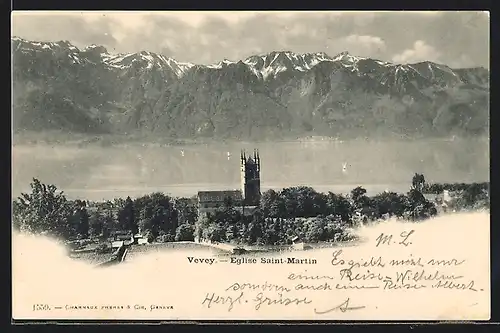 Vevey. — Eglise Saint-Martin
M. L.
Es giebt nicht nur
einen Reise-Wilhelm
sondern auch einen Reise Albert.
Herzl. Grüsse
A
1559. — CHARNAUX FRÈRES & Cie, GENÈVE